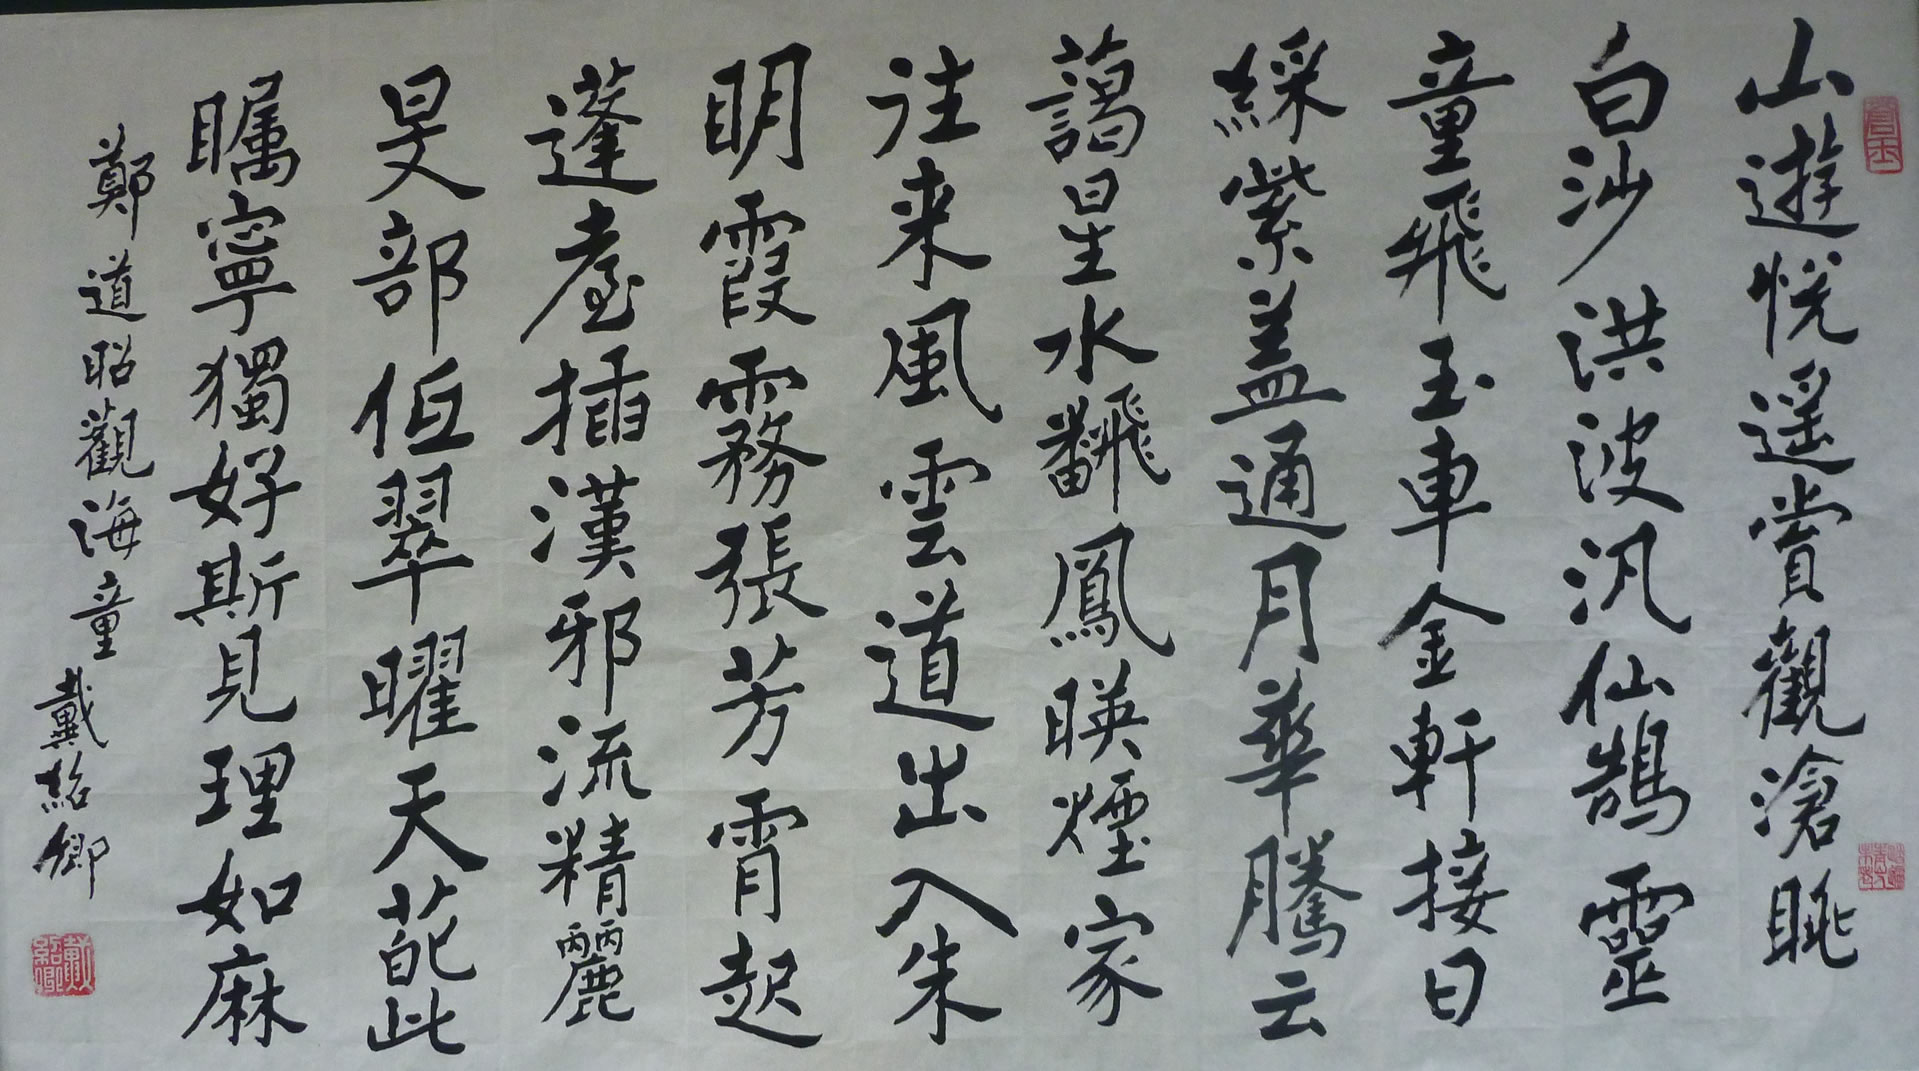 山遊悅遥賞觀滄眺
白沙洪波汎仙鵠靈
童飛玉車金軒接日
綵紫盖通月華騰云
藹星水飜鳳暎煙家
往来風雲道出入朱
明霞霧張芳霄起
蓬臺插漢邪流精麗
旻部低翠曜天葩此
矚寧獨好斯見理如麻
鄭道昭觀海童
戴紹卿
戴紹卿